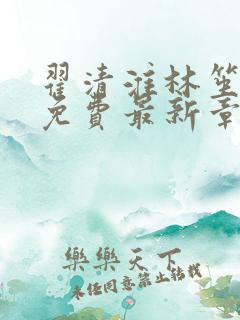 翟清淮林笙
免費最新章
樂樂天下
未经同意禁止转载